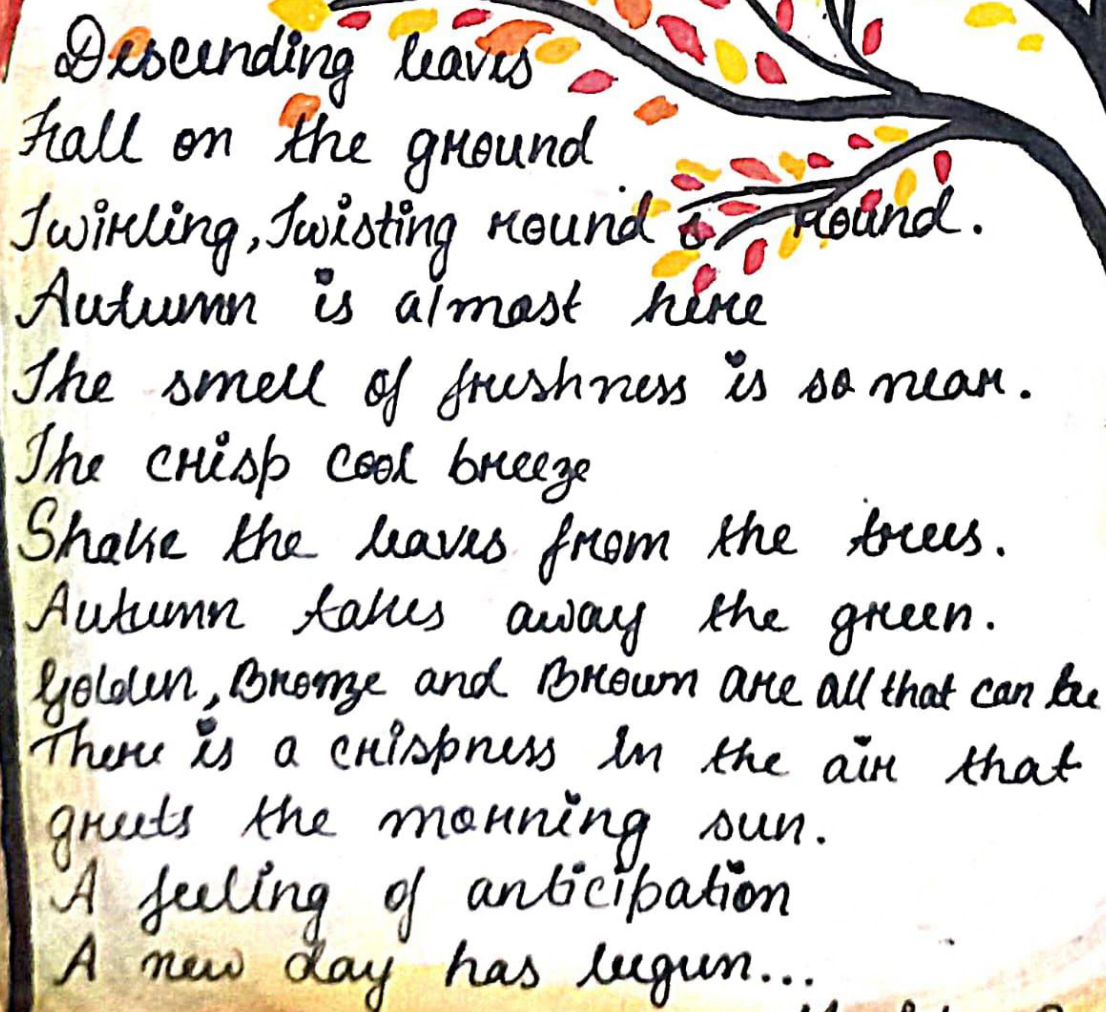 Descending leaves
Fall on the ground
Twirling, Twisting round & round.
Autumn is almost here
The smell of freshness is so near.
The crisp cool breeze
Shake the leaves from the trees.
Autumn takes away the green.
Golden, Bronze and Brown are all that can be
There is a crispness in the air that
greets the morning sun.
A feeling of anticipation
A new day has begun...